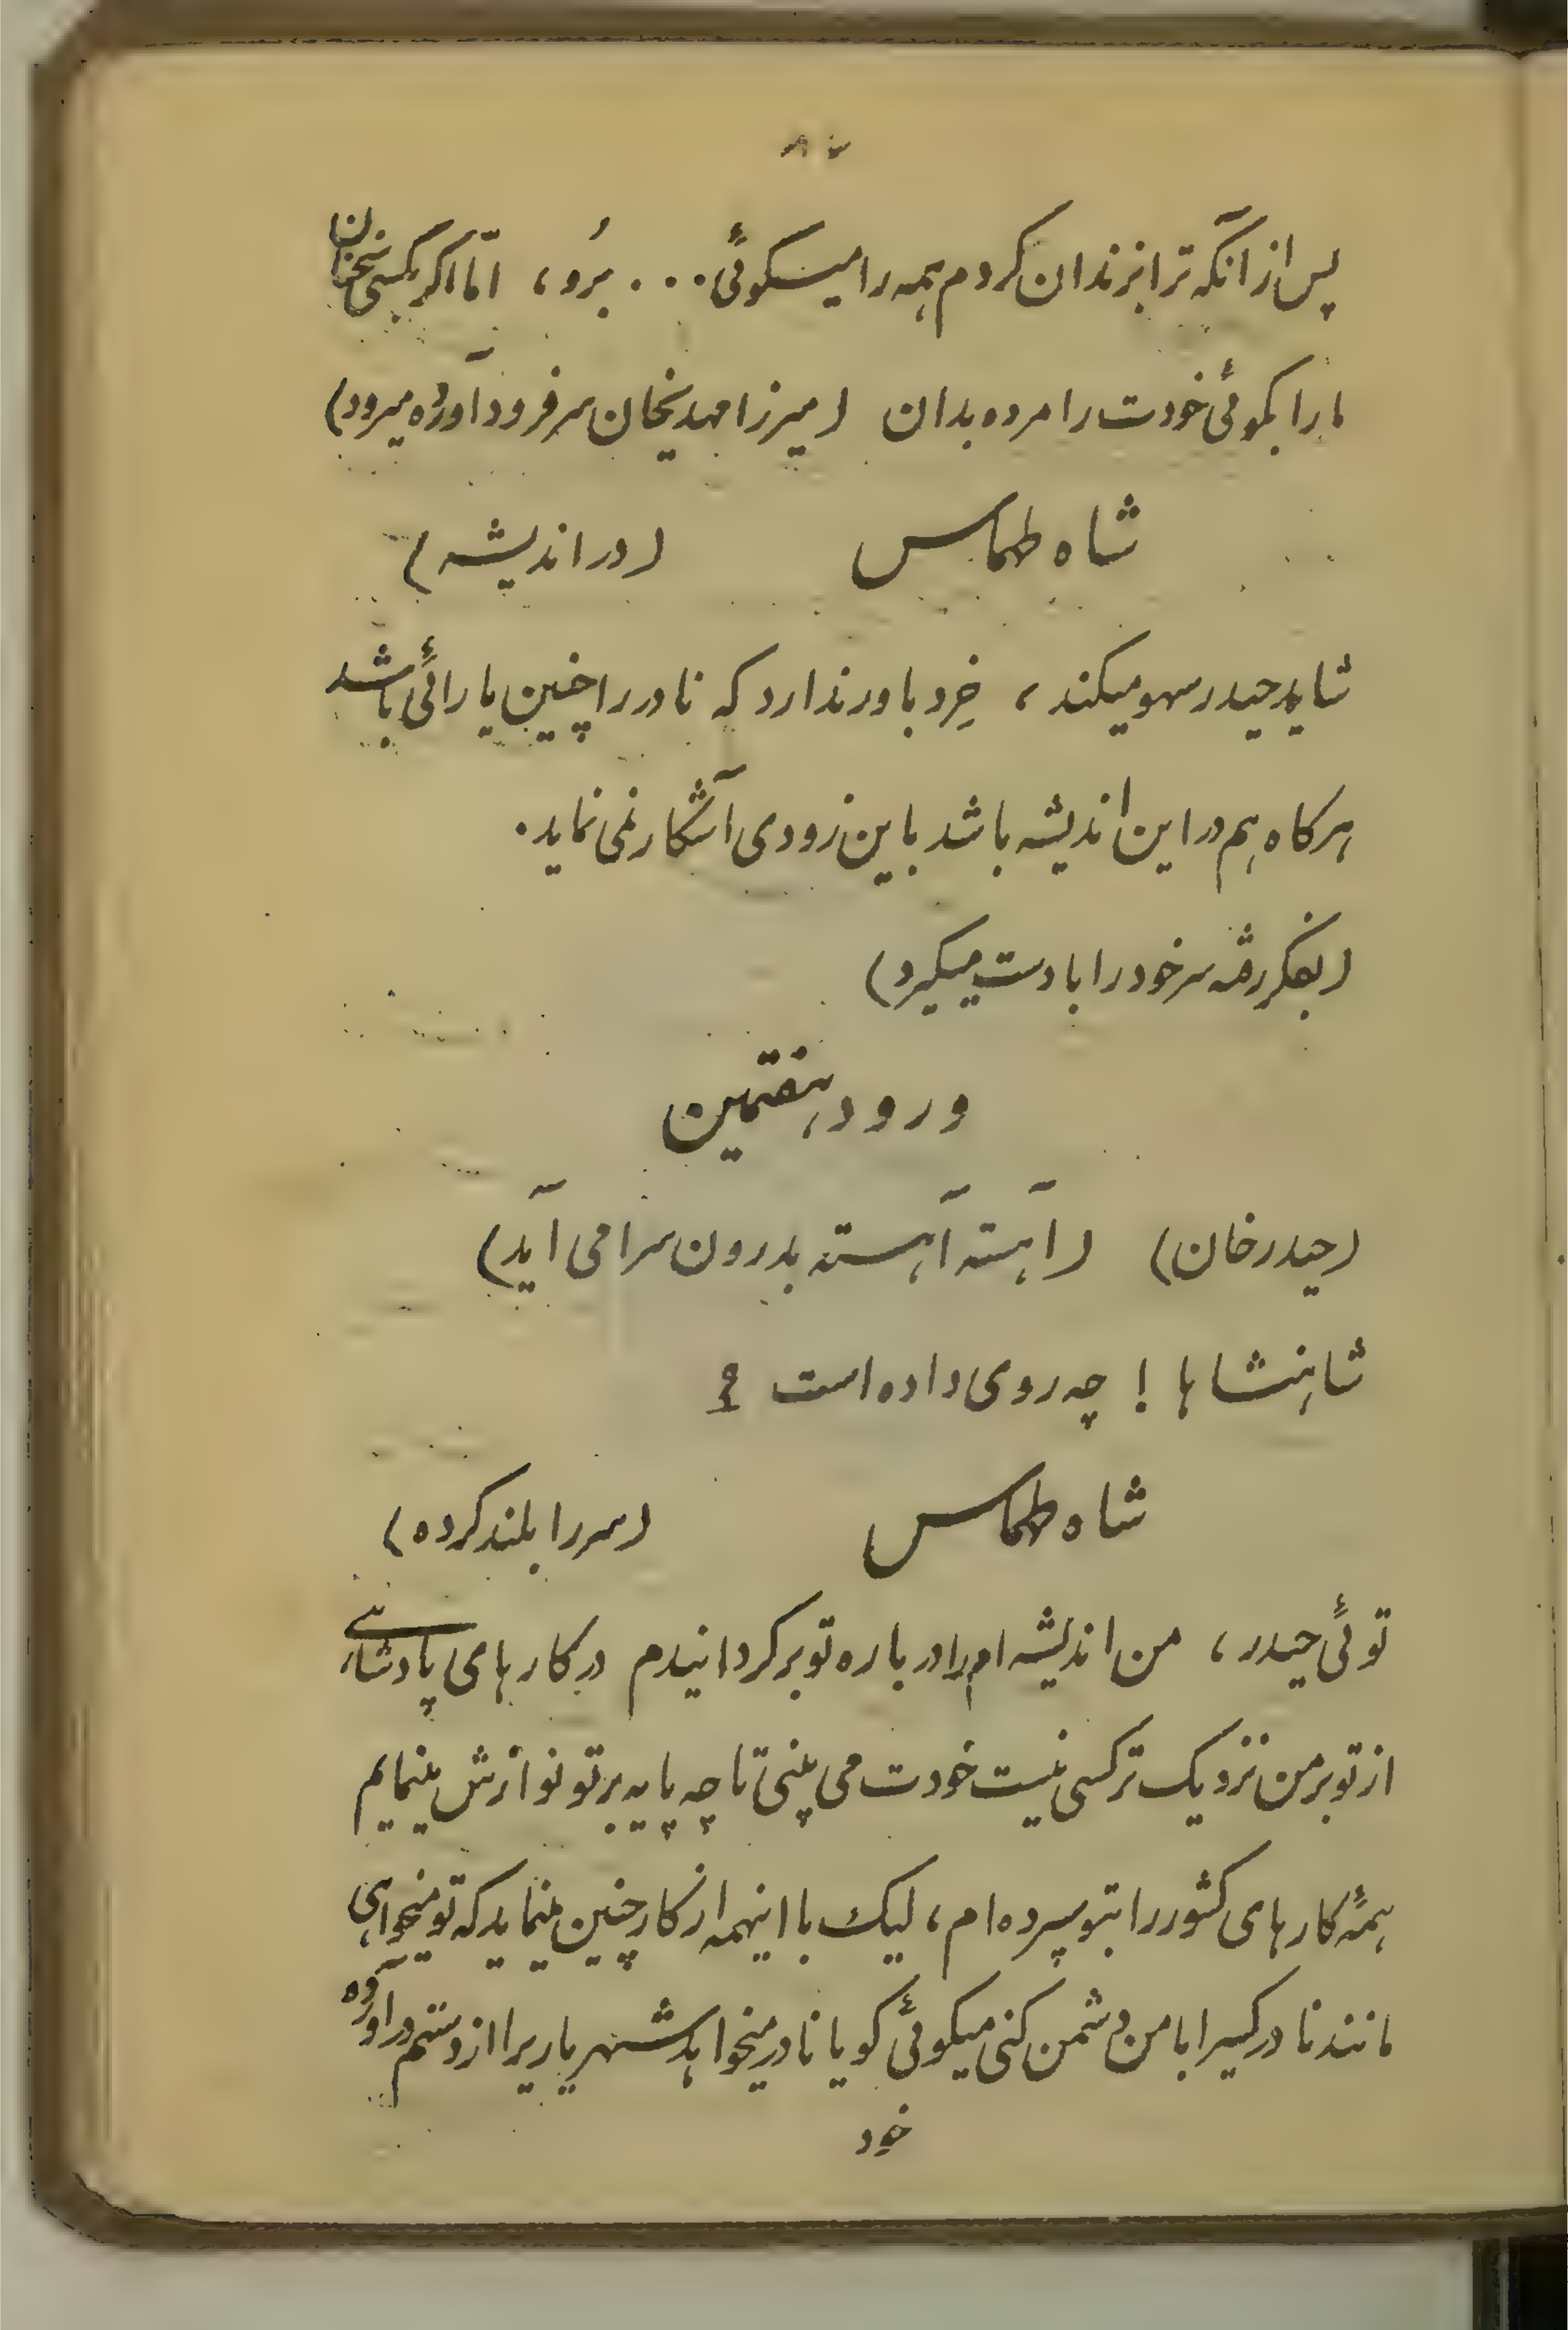 پس از آنکه ترا بزندان کردم همه را میکوئی . . . بُرو، امّا اکر بکسی سخنان
مارا بکوئی خودت را مرده بدان (میرزا مهدیخان سر فرود آورده میرود)
شاه طهماس (در اندیشه)
شاید حیدر سهو میکند، خِرد باور ندارد که نادر را چنین یارائی باشد
هرکاه هم در این اندیشه باشد باین زودی آشکار نمی نماید.
(بفکر رفته سر خود را با دست میکیرد)
ورود هفتمین
(حیدر خان) (آهسته آهسته بدرون سرا می آید)
شاهنشاها ! چه روی داده است ؟
شاه طهماس (سر را بلند کرده)
توئی حیدر، من اندیشه ام را در باره تو برکردانیدم در کارهای پادشاهی
از تو بر من نزدیک تر کسی نیست خودت می بینی تا چه پایه بر تو نوازش مینمایم
همهٔ کارهای کشور را بتو سپرده ام، لیک با اینهمه از کار چنین مینماید که تو میخواهی
مانند نادر کسیرا با من دشمن کنی میکوئی کویا نادر میخواهد شهریاریرا از دستم در آورده
خود